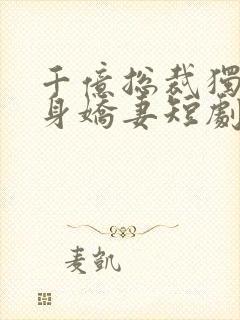 千億總裁獨
身嬌妻短劇
麦凱